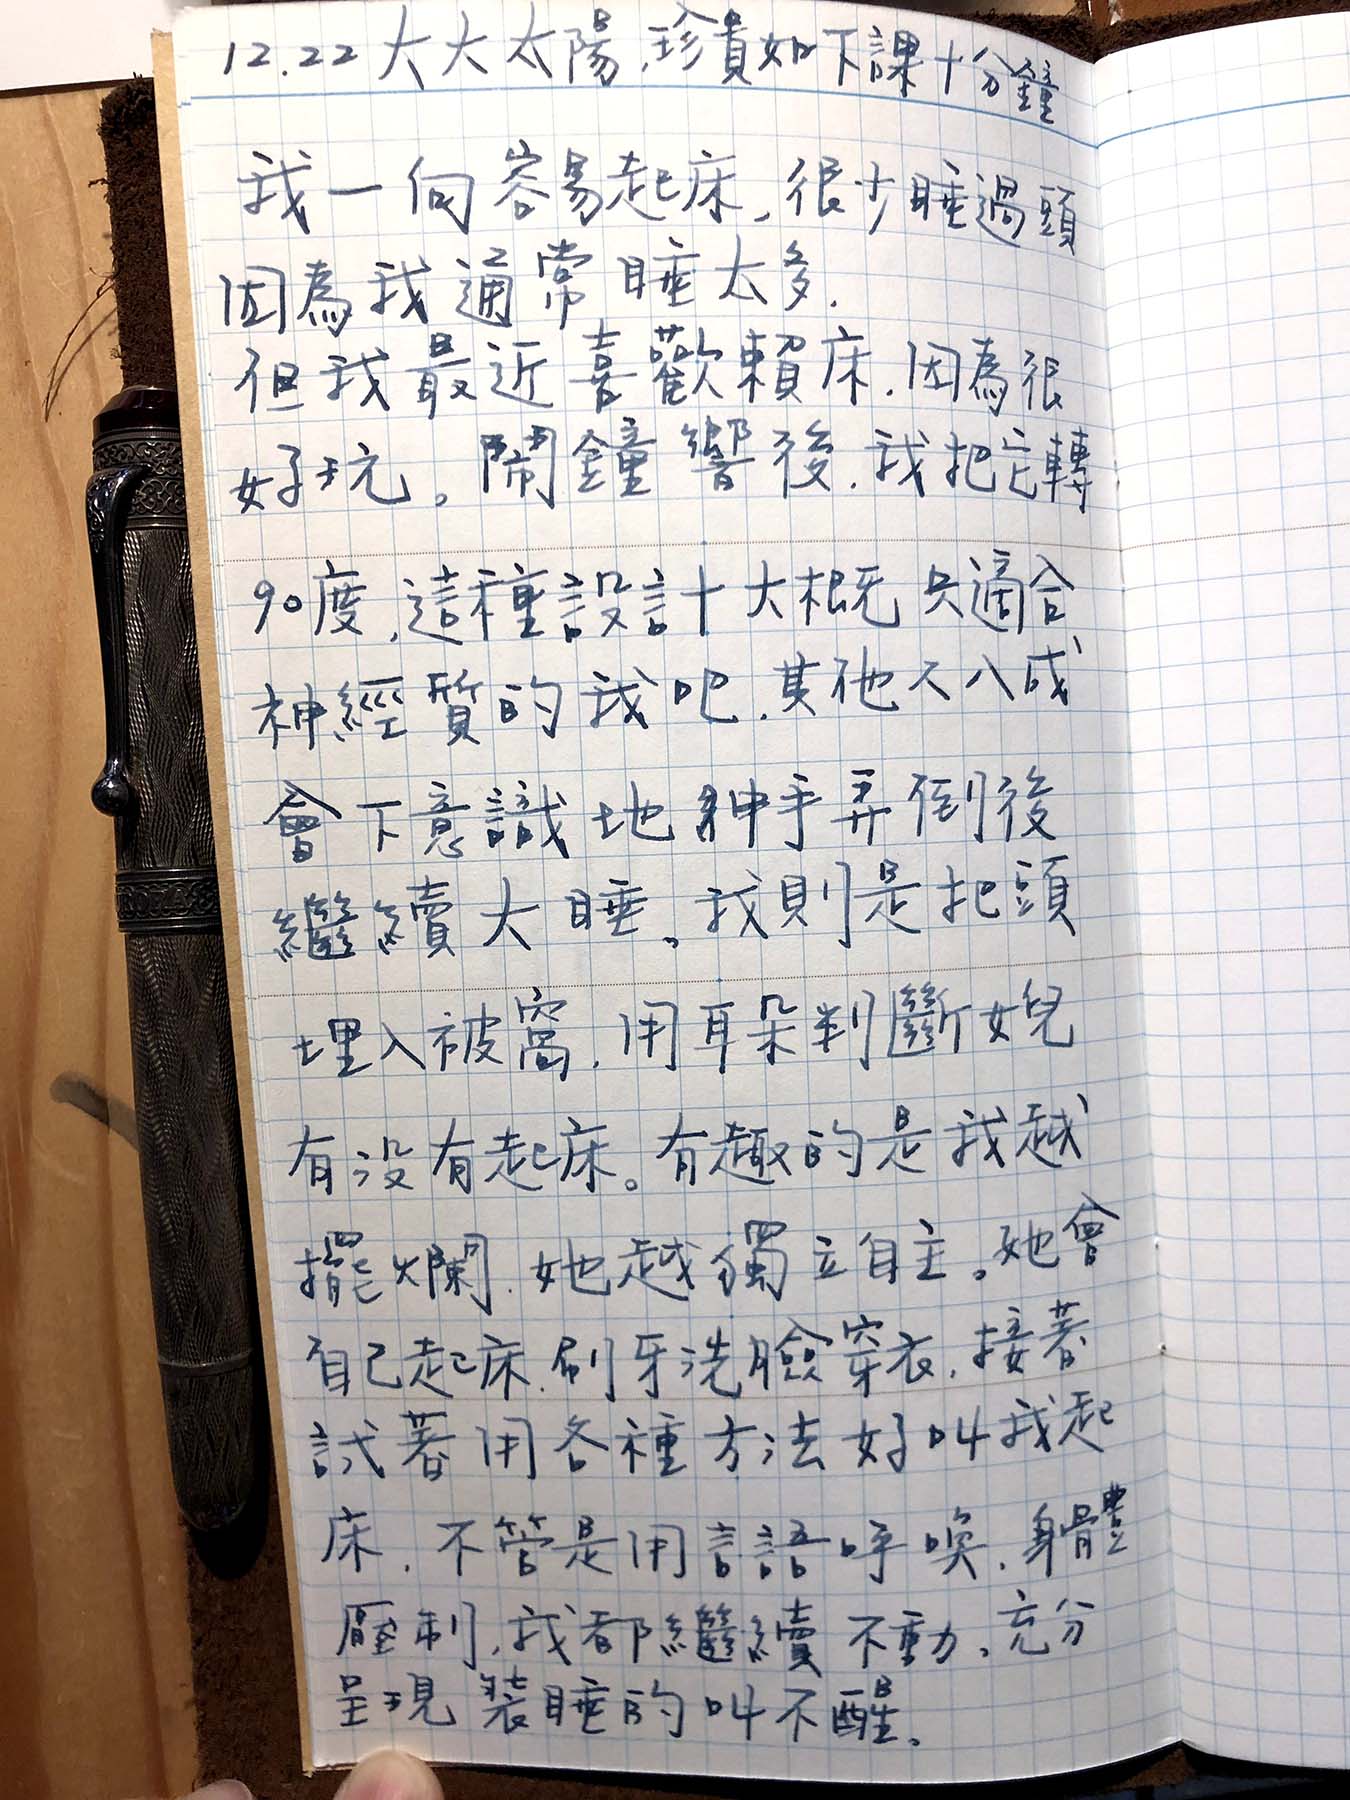 12.22 大大太陽,珍貴如下課十分鐘
我一向容易起床,很少睡過頭
因為我通常睡太多.
但我最近喜歡賴床,因為很
好玩。鬧鐘響後,我把它轉
90度,這種設計大概只適合
神經質的我吧,其他人八成
會下意識地伸手弄倒後
繼續大睡。我則是把頭
埋入被窩,用耳朵判斷女兒
有沒有起床。有趣的是我越
擺爛,她越獨立自主。她會
自己起床刷牙洗臉穿衣,接著
試著用各種方法好叫我起
床,不管是用言語呼喚,身體
壓制,我都繼續不動,充分
呈現裝睡的叫不醒。
ROZA